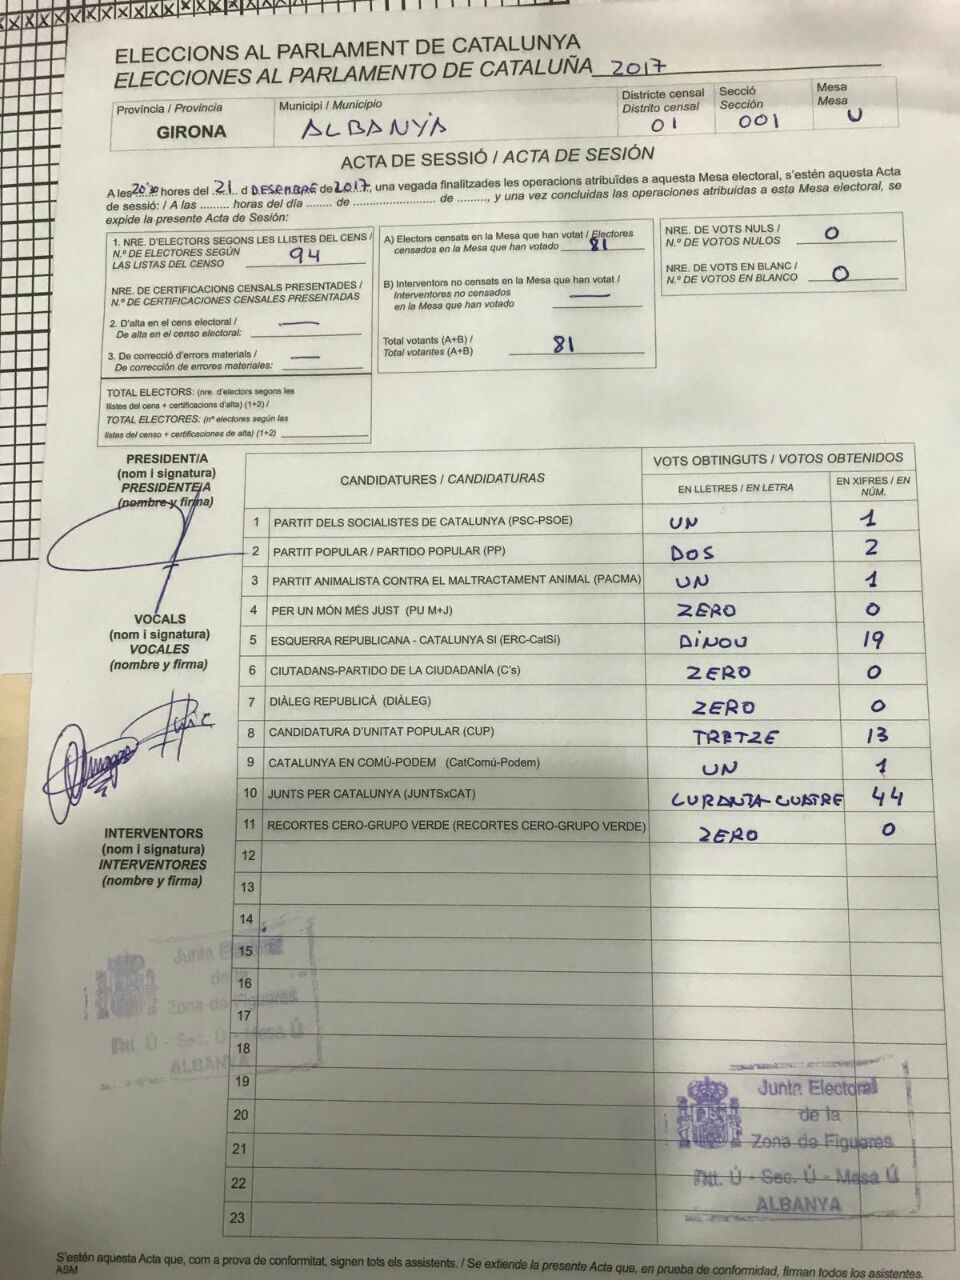 ELECCIONS AL PARLAMENT DE CATALUNYA
ELECCIONES AL PARLAMENTO DE CATALUÑA 2017
Província / Provincia
GIRONA
Municipi / Municipio
ALBANYÀ
Districte censal
Distrito censal
01
Secció
Sección
001
Mesa
Mesa
U
ACTA DE SESSIÓ / ACTA DE SESIÓN
A les 20'30 hores del 21 d DESEMBRE de 2017, una vegada finalitzades les operacions atribuïdes a aquesta Mesa electoral, s'estén aquesta Acta
de sessió: / A las ......... horas del día ........ de .......................... de .........., y una vez concluidas las operaciones atribuidas a esta Mesa electoral, se
expide la presente Acta de Sesión:
1. NRE. D'ELECTORS SEGONS LES LLISTES DEL CENS /
N.º DE ELECTORES SEGÚN
LAS LISTAS DEL CENSO 94
NRE. DE CERTIFICACIONS CENSALS PRESENTADES /
N.º DE CERTIFICACIONES CENSALES PRESENTADAS
2. D'alta en el cens electoral / —
De alta en el censo electoral:
3. De correcció d'errors materials / —
De corrección de errores materiales:
TOTAL ELECTORS: (nre. d'electors segons les
llistes del cens + certificacions d'alta) (1+2) /
TOTAL ELECTORES: (nº electores según las
listas del censo + certificaciones de alta) (1+2)
A) Electors censats en la Mesa que han votat / Electores
censados en la Mesa que han votado 81
B) Interventors no censats en la Mesa que han votat /
Interventores no censados —
en la Mesa que han votado
Total votants (A+B) /
Total votantes (A+B) 81
NRE. DE VOTS NULS /
N.º DE VOTOS NULOS 0
NRE. DE VOTS EN BLANC /
N.º DE VOTOS EN BLANCO 0
PRESIDENT/A
(nom i signatura)
PRESIDENTE/A
(nombre y firma)
VOCALS
(nom i signatura)
VOCALES
(nombre y firma)
INTERVENTORS
(nom i signatura)
INTERVENTORES
(nombre y firma)
CANDIDATURES / CANDIDATURAS
VOTS OBTINGUTS / VOTOS OBTENIDOS
EN LLETRES / EN LETRA
EN XIFRES / EN
NÚM.
1 PARTIT DELS SOCIALISTES DE CATALUNYA (PSC-PSOE) UN 1
2 PARTIT POPULAR / PARTIDO POPULAR (PP) DOS 2
3 PARTIT ANIMALISTA CONTRA EL MALTRACTAMENT ANIMAL (PACMA) UN 1
4 PER UN MÓN MÉS JUST (PU M+J) ZERO 0
5 ESQUERRA REPUBLICANA - CATALUNYA SI (ERC-CatSí) DINOU 19
6 CIUTADANS-PARTIDO DE LA CIUDADANÍA (C's) ZERO 0
7 DIÀLEG REPUBLICÀ (DIÀLEG) ZERO 0
8 CANDIDATURA D'UNITAT POPULAR (CUP) TRETZE 13
9 CATALUNYA EN COMÚ-PODEM (CatComú-Podem) UN 1
10 JUNTS PER CATALUNYA (JUNTSxCAT) CURANTA-CUATRE 44
11 RECORTES CERO-GRUPO VERDE (RECORTES CERO-GRUPO VERDE) ZERO 0
12
13
14
15
16
17
18
19
20
21
22
23
Junta Electoral
de la
Zona de Figueres
Dtt. Ú - Sec. Ú - Mesa Ú
ALBANYA
Junta Electoral
de la
Zona de Figueres
Dtt. Ú - Sec. Ú - Mesa Ú
ALBANYA
S'estén aquesta Acta que, com a prova de conformitat, signen tots els assistents. / Se extiende la presente Acta que, en prueba de conformidad, firman todos los asistentes.
ASM